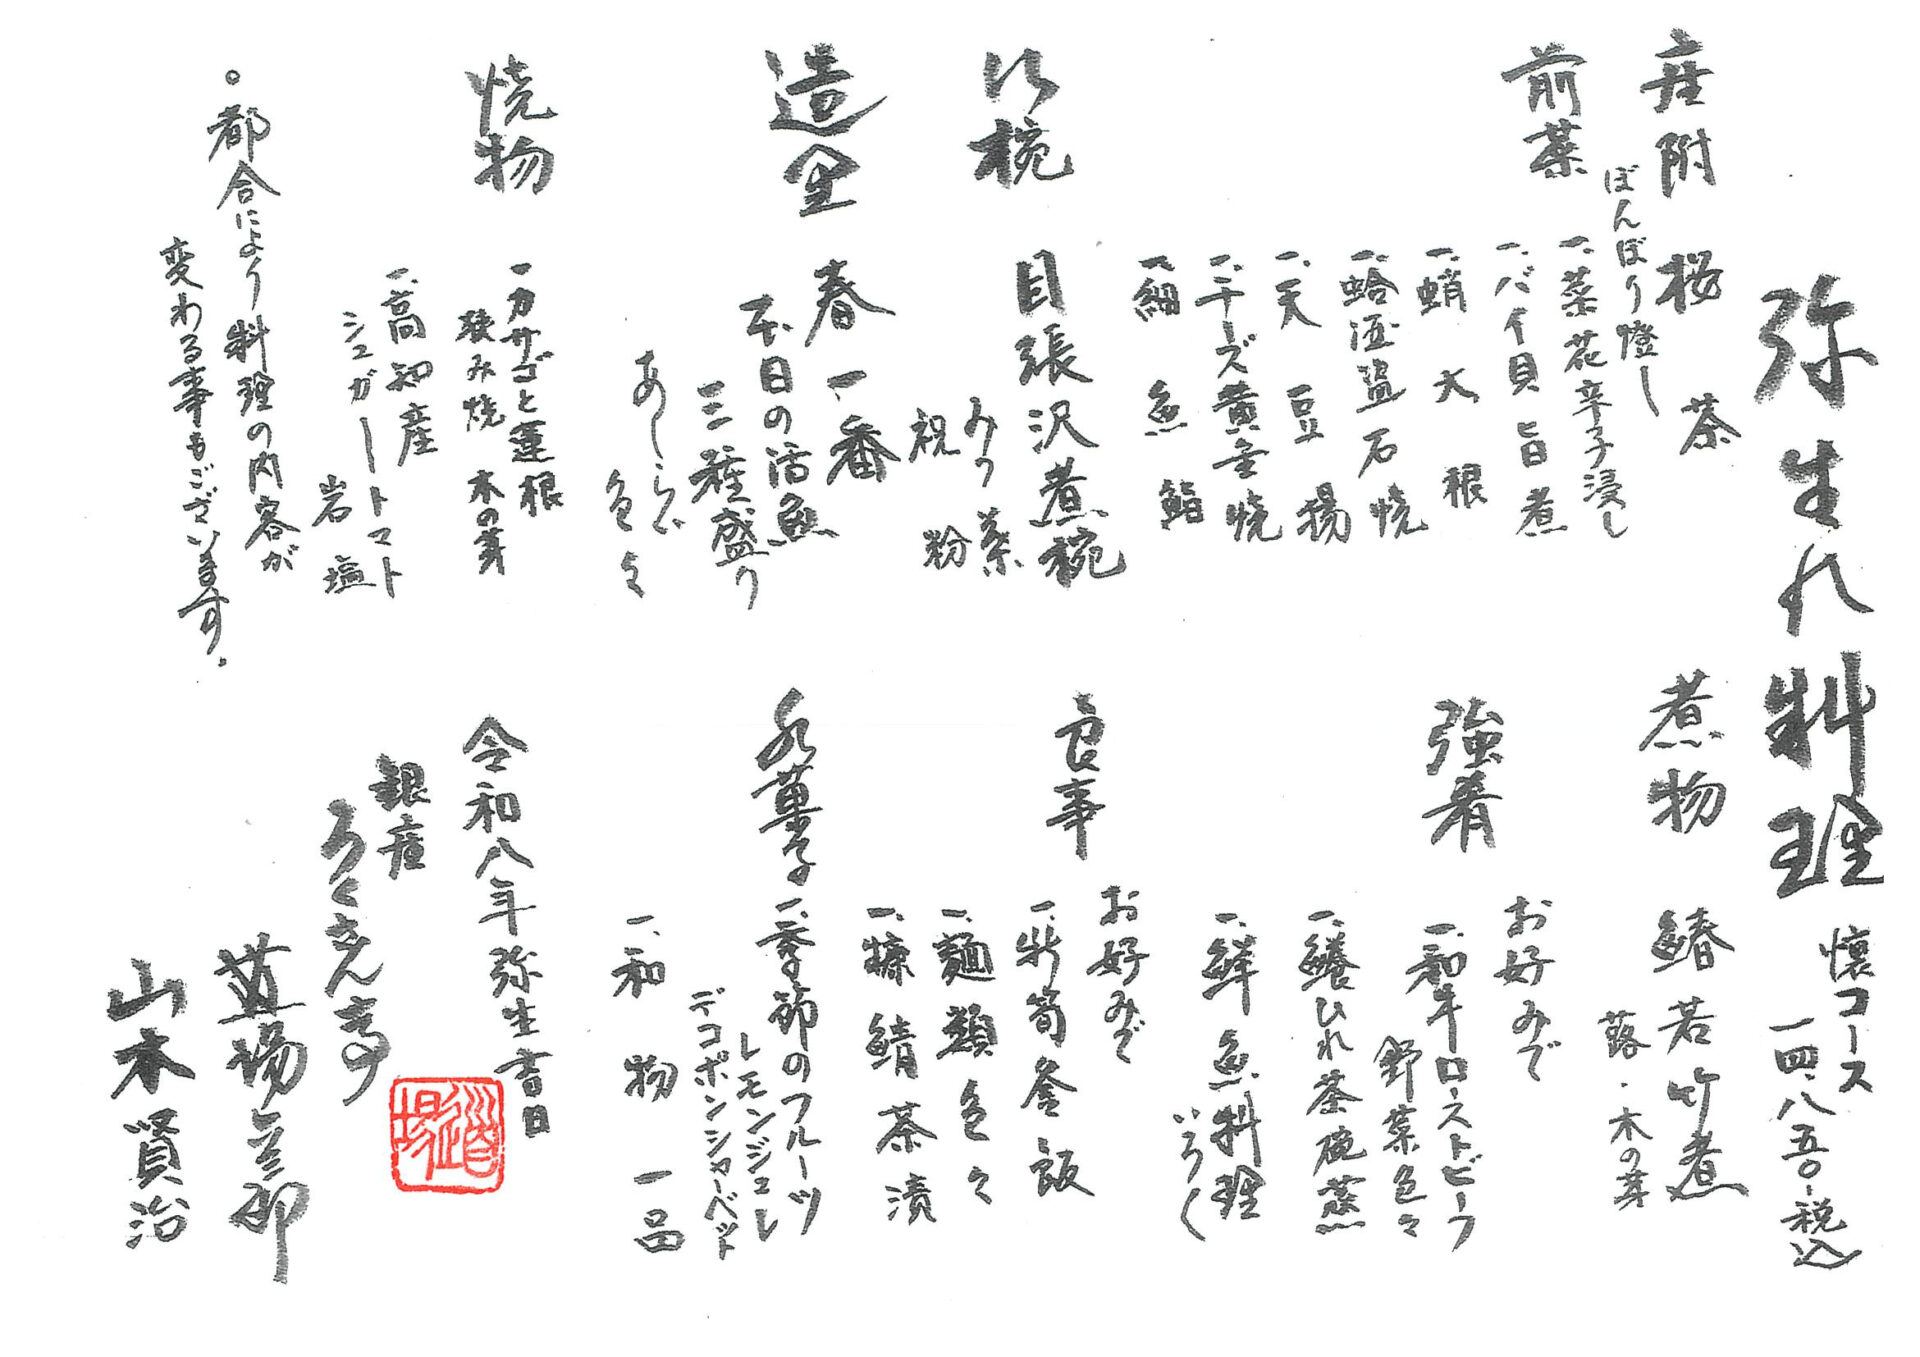 弥生乃料理
懐コース
一四、八五〇-税込
座附
桜茶
ぼんぼり燈し
前菜
一、菜花辛子浸し
一、バイ貝旨煮
一、蛸大根
一、蛤酒盗石焼
一、天豆揚
一、チーズ黄金焼
一、細魚鮨
沢椀
目張沢煮椀
みつ葉
祝粉
造里
春一番
本日の活魚
三種盛り
あしらい
色々
焼物
一、カサゴと蓮根
挟み焼 木の芽
一、高知産
シュガートマト
岩塩
。都合により料理の内容が
変わる事もございます。
煮物
鰆若竹煮
蕗・木の芽
強肴
お好みで
一、和牛ローストビーフ
野菜色々
一、鱶ひれ茶碗蒸
一、鮮魚料理
いろく
食事
お好みで
一、新筍釜飯
一、麺類色々
一、糠鯖茶漬
水菓子
一、季節のフルーツ
レモンジュレ
デコポンシャーベット
一、和物一品
令和八年弥生吉日
銀座
ろくさん亭
道場六三郎
山本賢治
道場